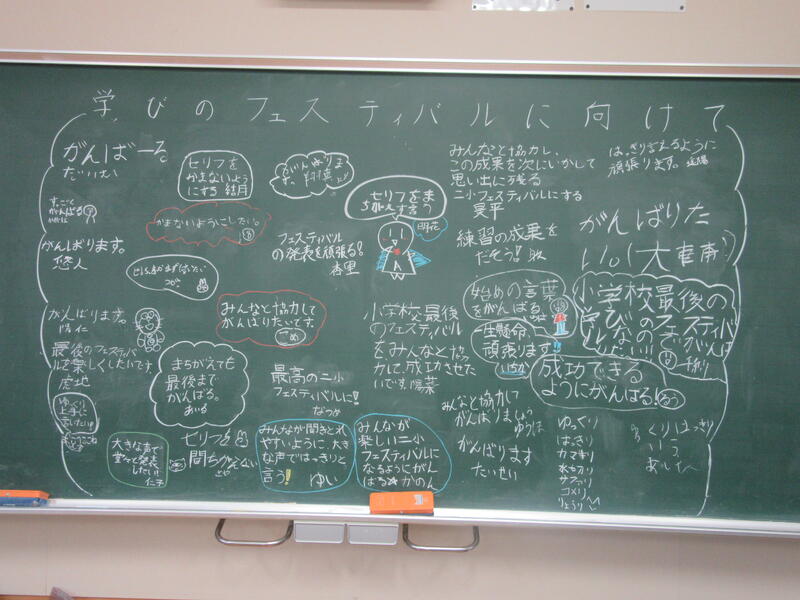 学びのフェスティバルに向けて
がんばーる。
だいせい
セリフを
かまないよう
にする 結月
がんばりま
す。
みんなと協力し、
この成果を次にいかして
思い出に残る
二小フェスティバルにする
昊平
はっきり言えるように
頑張ります。
すっごく
がんばる
かまないようにしたい。
セリフをま
ちがえず言う
明花
がんばりた
い。
がんばります。
悠人
フェスティバル
の発表を頑張る!
杏里
練習の成果を
だそう!
がんばります。
陽仁
みんなと協力して
がんばりたいです。
こめ
小学校最後
のフェスティバル
をみんなと協
力して成功させた
いです。陽菜
始めの言葉
をがんばる。
一生懸命、
頑張ります
いちか
小学校最後の
学びの
フェスティバ
ル
最後のフェスティバ
ルを楽しくしたいです。
まちがえても
最後まで
がんばる。
あいる
最高の二小
フェスティバルに!
なつか
成功できる
ようにがんばる!
ゆっくり
上手に
言いたい
みんなと協力して
がんばりましょう
ゆうは
がんばります
たいせい
ゆっくり
はっきり
カマキリ
水もりり
サファリ
コメリ
りょうり
大きな声で
堂々と発表
したい
仁子
セリフを
間ちがえない
みんなが聞きとれ
やすいように、大き
な声ではっきりと
言う!
ゆい
みんなが
楽しい二小
フェスティバルに
なるようにがん
ばる★かのん